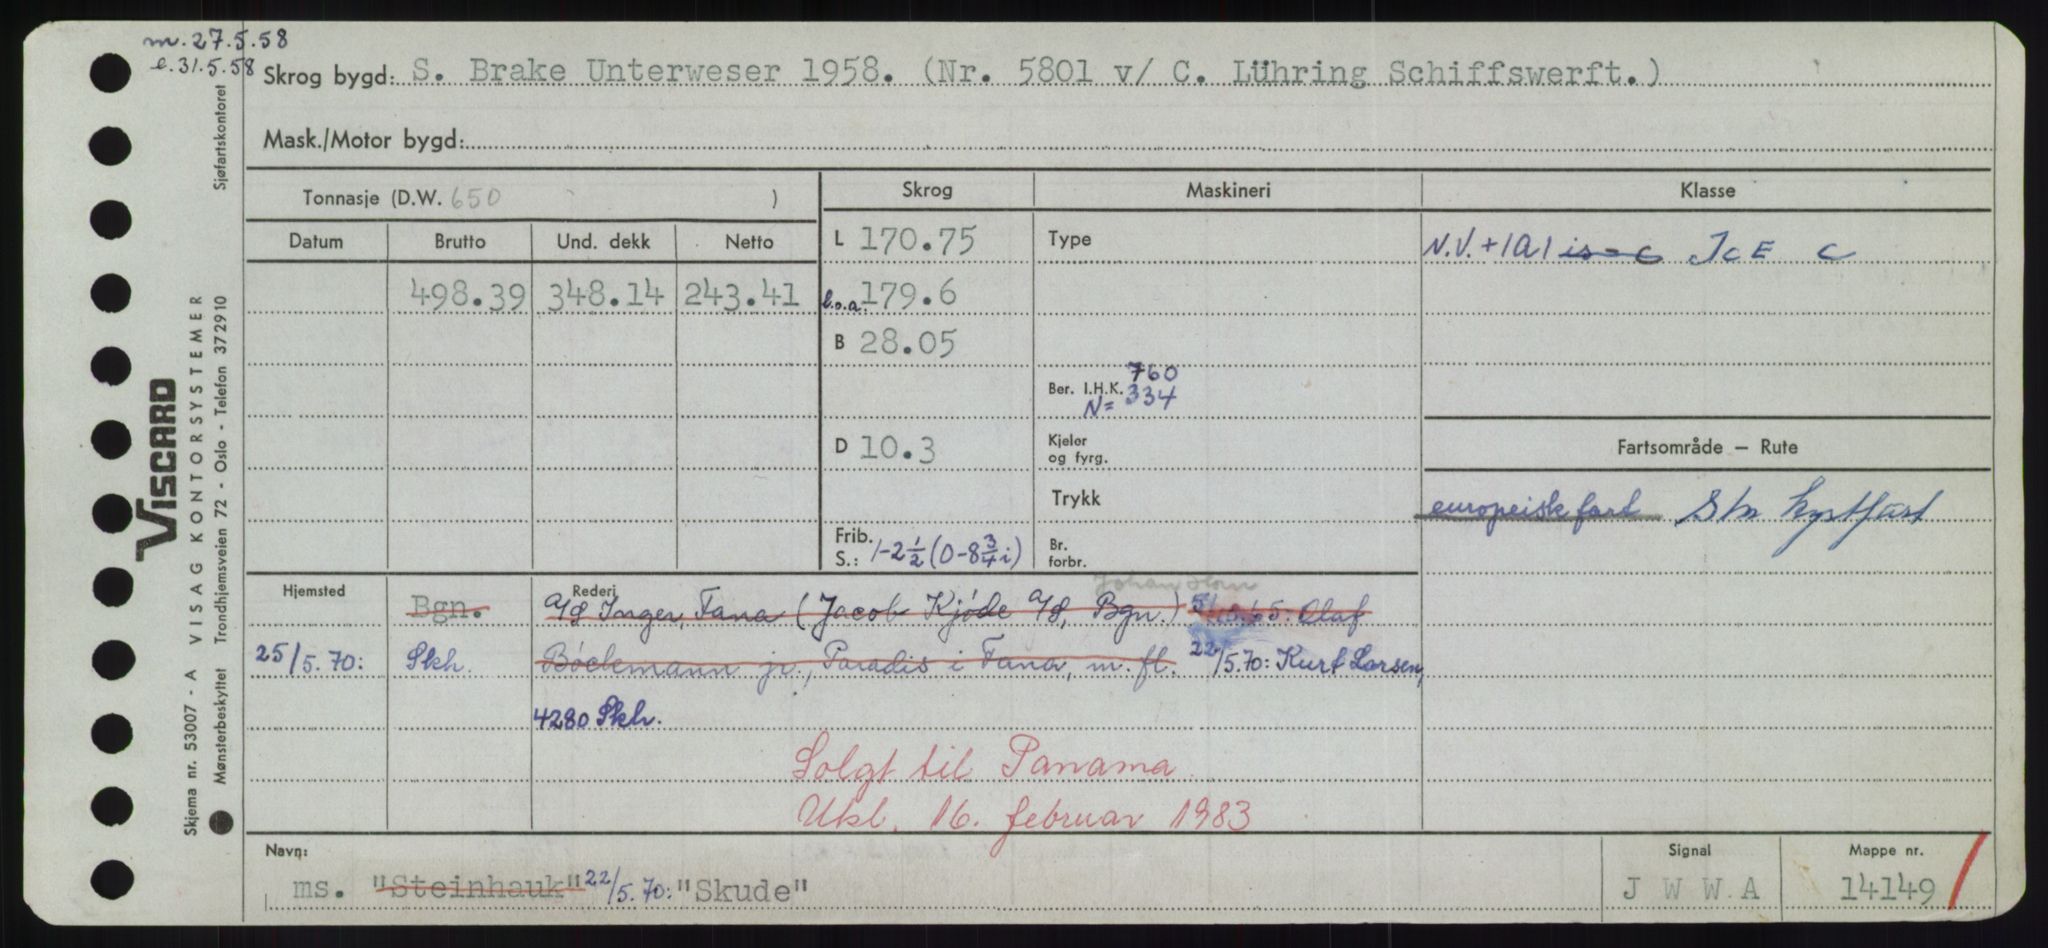 m. 27.5.58
e. 31.5.58
Skrog bygd: S. Brake Unterweser 1958. (Nr. 5801 v/ C. Lühring Schiffswerft.)
Mask./Motor bygd:
Tonnasje (D.W. 650 )
Skrog Maskineri Klasse
Datum Brutto Und. dekk Netto
L 170.75 Type N.V. +1A1 is-C Ice C
498.39 348.14 243.41 l.o.a. 179.6
B 28.05
Ber. I.H.K. 760
N= 334
D 10.3 Kjeler og fyrg.
Fartsområde — Rute
Trykk europeisk fart Stor kystfart
Frib. S.: 1-2½ (0-8¾i) Br. forbr.
Hjemsted Bgn. Rederi A/S Inger, Fana (Jacob Kjøde A/S, Bgn.) Olaf
25/5.70: Skh. Böckmann jr., Paradis i Fana, m.fl. 22/5.70: Kurt Larsen,
4280 Skh.
Solgt til Panama.
Utkl. 16. februar 1983
Navn: ms. "Steinhauk" 22/5.70: "Skude"
Signal J W W A
Mappe nr. 14149
VISCARD
VISAG KONTORSYSTEMER
Skjema nr. 53007 - A
Mønsterbeskyttet Trondhjemsveien 72 - Oslo - Telefon 372910 Sjøfartskontoret